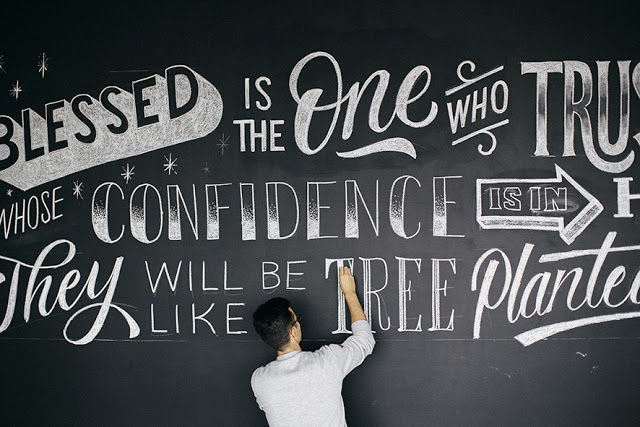 BLESSED IS THE One WHO TRUS
WHOSE CONFIDENCE IS IN H
They WILL BE LIKE TREE Plante